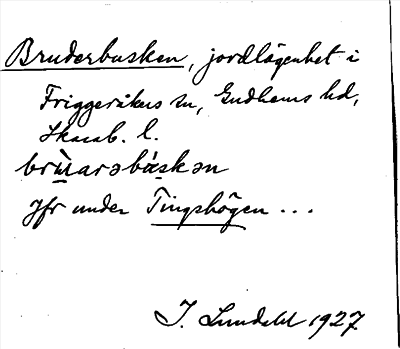 Bruderbusken, jordlägenhet i
Friggeråkers sn, Gudhems hd,
Skarab. l.
brùarəbáskən
Jfr under Tingshögen ...
I. Lundahl 1927